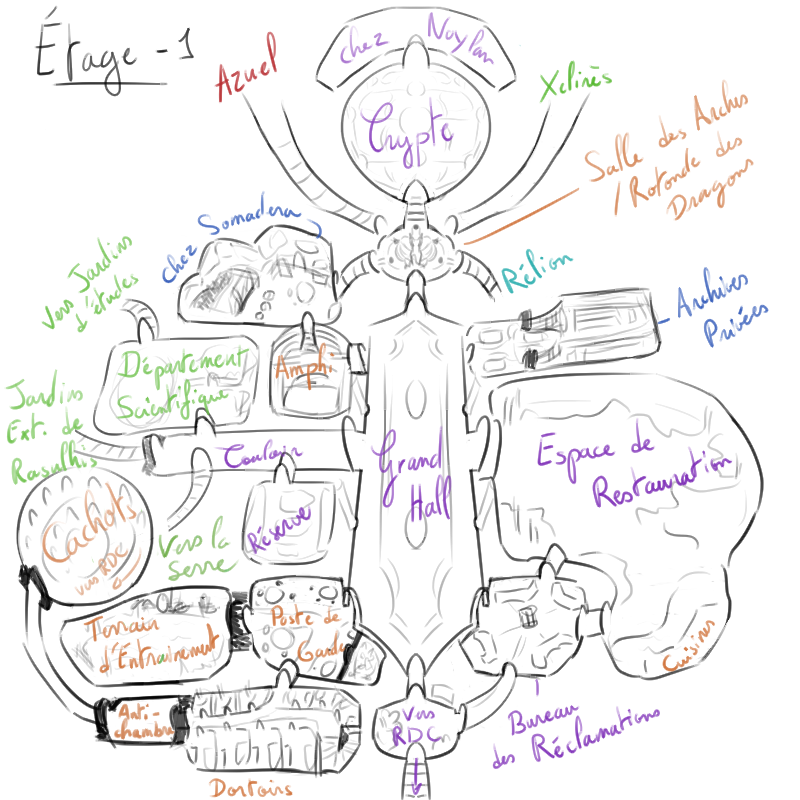 Étage -1
chez Noylan
Azuel
Xclirès
Crypte
Salle des Arches
/ Rotonde des
Dragons
chez Somadera
Rélion
Vers Jardins
d'études
Archives
Privées
Département
Scientifique
Amphi
Jardins
Ext. de
Rasulhis
Couloir
Grand
Hall
Espace de
Restauration
Cachots
vers RDC
Réserve
Vers la
Serre
Terrain
d'Entrainement
Poste de
Garde
Cuisines
Anti-
chambre
Dortoirs
Vers
RDC
Bureau
des Réclamations